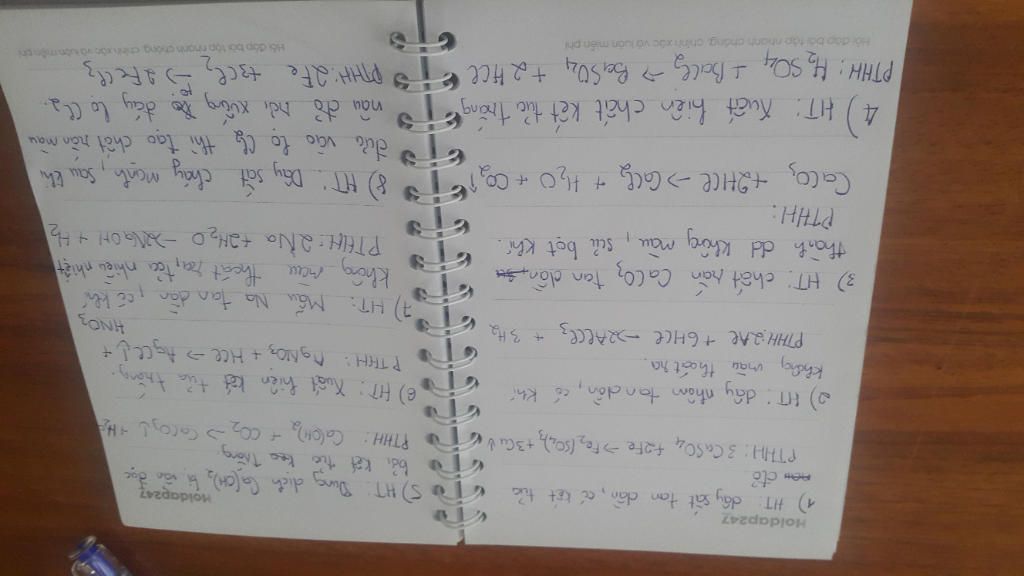 Hoidap247
1) HT: dây sắt tan dần, có kết tủa
đỏ
PTHH: 3CuSO4 + 2Fe → Fe2(SO4)3 + 3Cu↓
2) HT: dây nhôm tan dần, có khí
không màu thoát ra.
PTHH: 2Al + 6HCl → 2AlCl3 + 3H2
3) HT: chất rắn CaCO3 tan dần,
thành dd không màu, sủi bọt khí.
PTHH:
CaCO3 + 2HCl → CaCl2 + H2O + CO2↑
4) HT: Xuất hiện chất kết tủa trắng
PTHH: H2SO4 + BaCl2 → BaSO4 + 2HCl
Hỏi đáp bài tập nhanh chóng, chính xác và luôn miễn phí
Hoidap247
5) HT: Dung dịch Ca(OH)2 bị vẩn đục
bởi kết tủa trắng
PTHH: Ca(OH)2 + CO2 → CaCO3↓ + H2
6) HT: Xuất hiện kết tủa trắng.
PTHH: AgNO3 + HCl → AgCl↓ +
HNO3
7) HT: Mẩu Na tan dần, có khí
không màu thoát ra, tỏa nhiều nhiệt
PTHH: 2Na + 2H2O → 2NaOH + H2
8) HT: Dây sắt cháy mạnh, sau khi
đưa vào lọ Cl2 thì tạo chất rắn màu
nâu đỏ rơi xuống đáy lọ Cl2.
PTHH: 2Fe + 3Cl2 → 2FeCl3
Hỏi đáp bài tập nhanh chóng, chính xác và luôn miễn phí